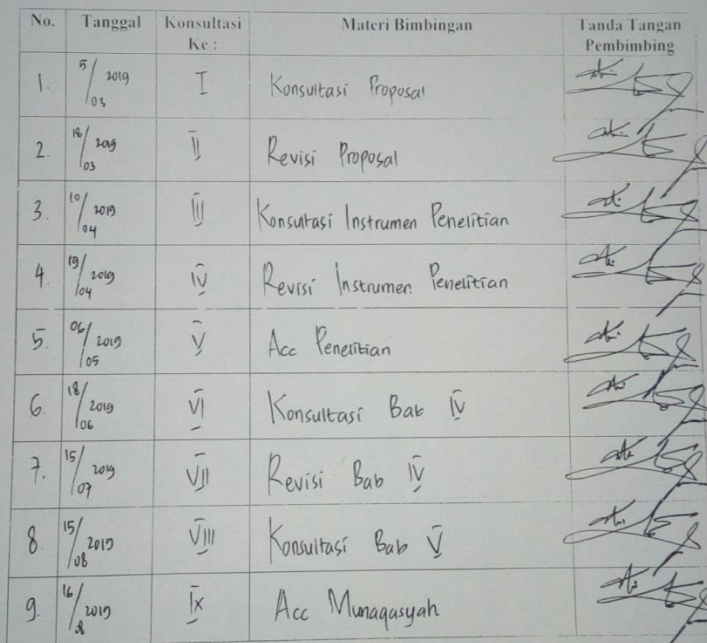 No. Tanggal Konsultasi Ke : Materi Bimbingan Tanda Tangan Pembimbing
1. 5/03 2019 I Konsultasi Proposal
2. 18/03 2019 II Revisi Proposal
3. 10/04 2019 III Konsultasi Instrumen Penelitian
4. 19/04 2019 IV Revisi Instrumen Penelitian
5. 06/05 2019 V Acc Penelitian
6. 18/06 2019 VI Konsultasi Bab IV
7. 15/07 2019 VII Revisi Bab IV
8. 15/08 2019 VIII Konsultasi Bab V
9. 16/8 2019 IX Acc Munaqasyah